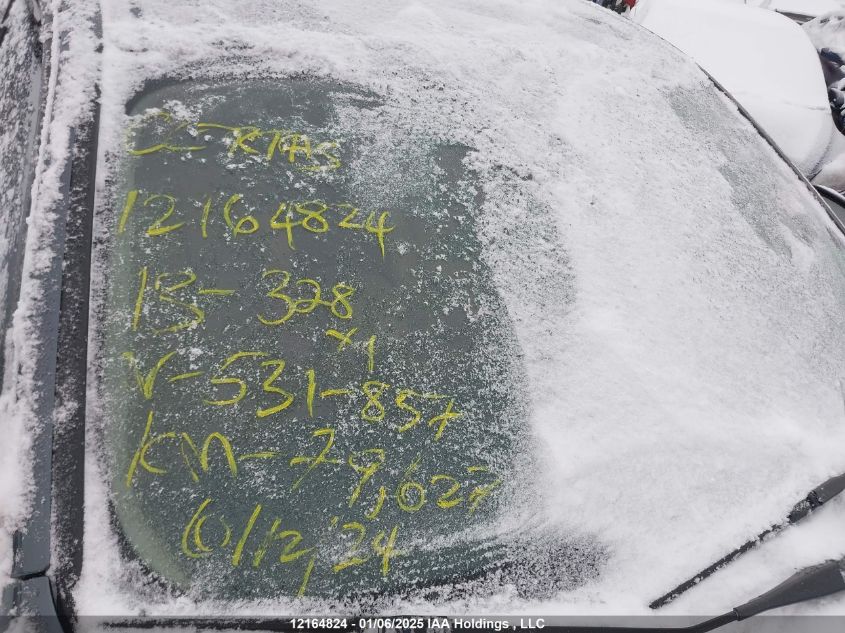 12164824
13-328
x1
V-531-857
KM-79,627
12164824 - 01/06/2025 IAA Holdings , LLC